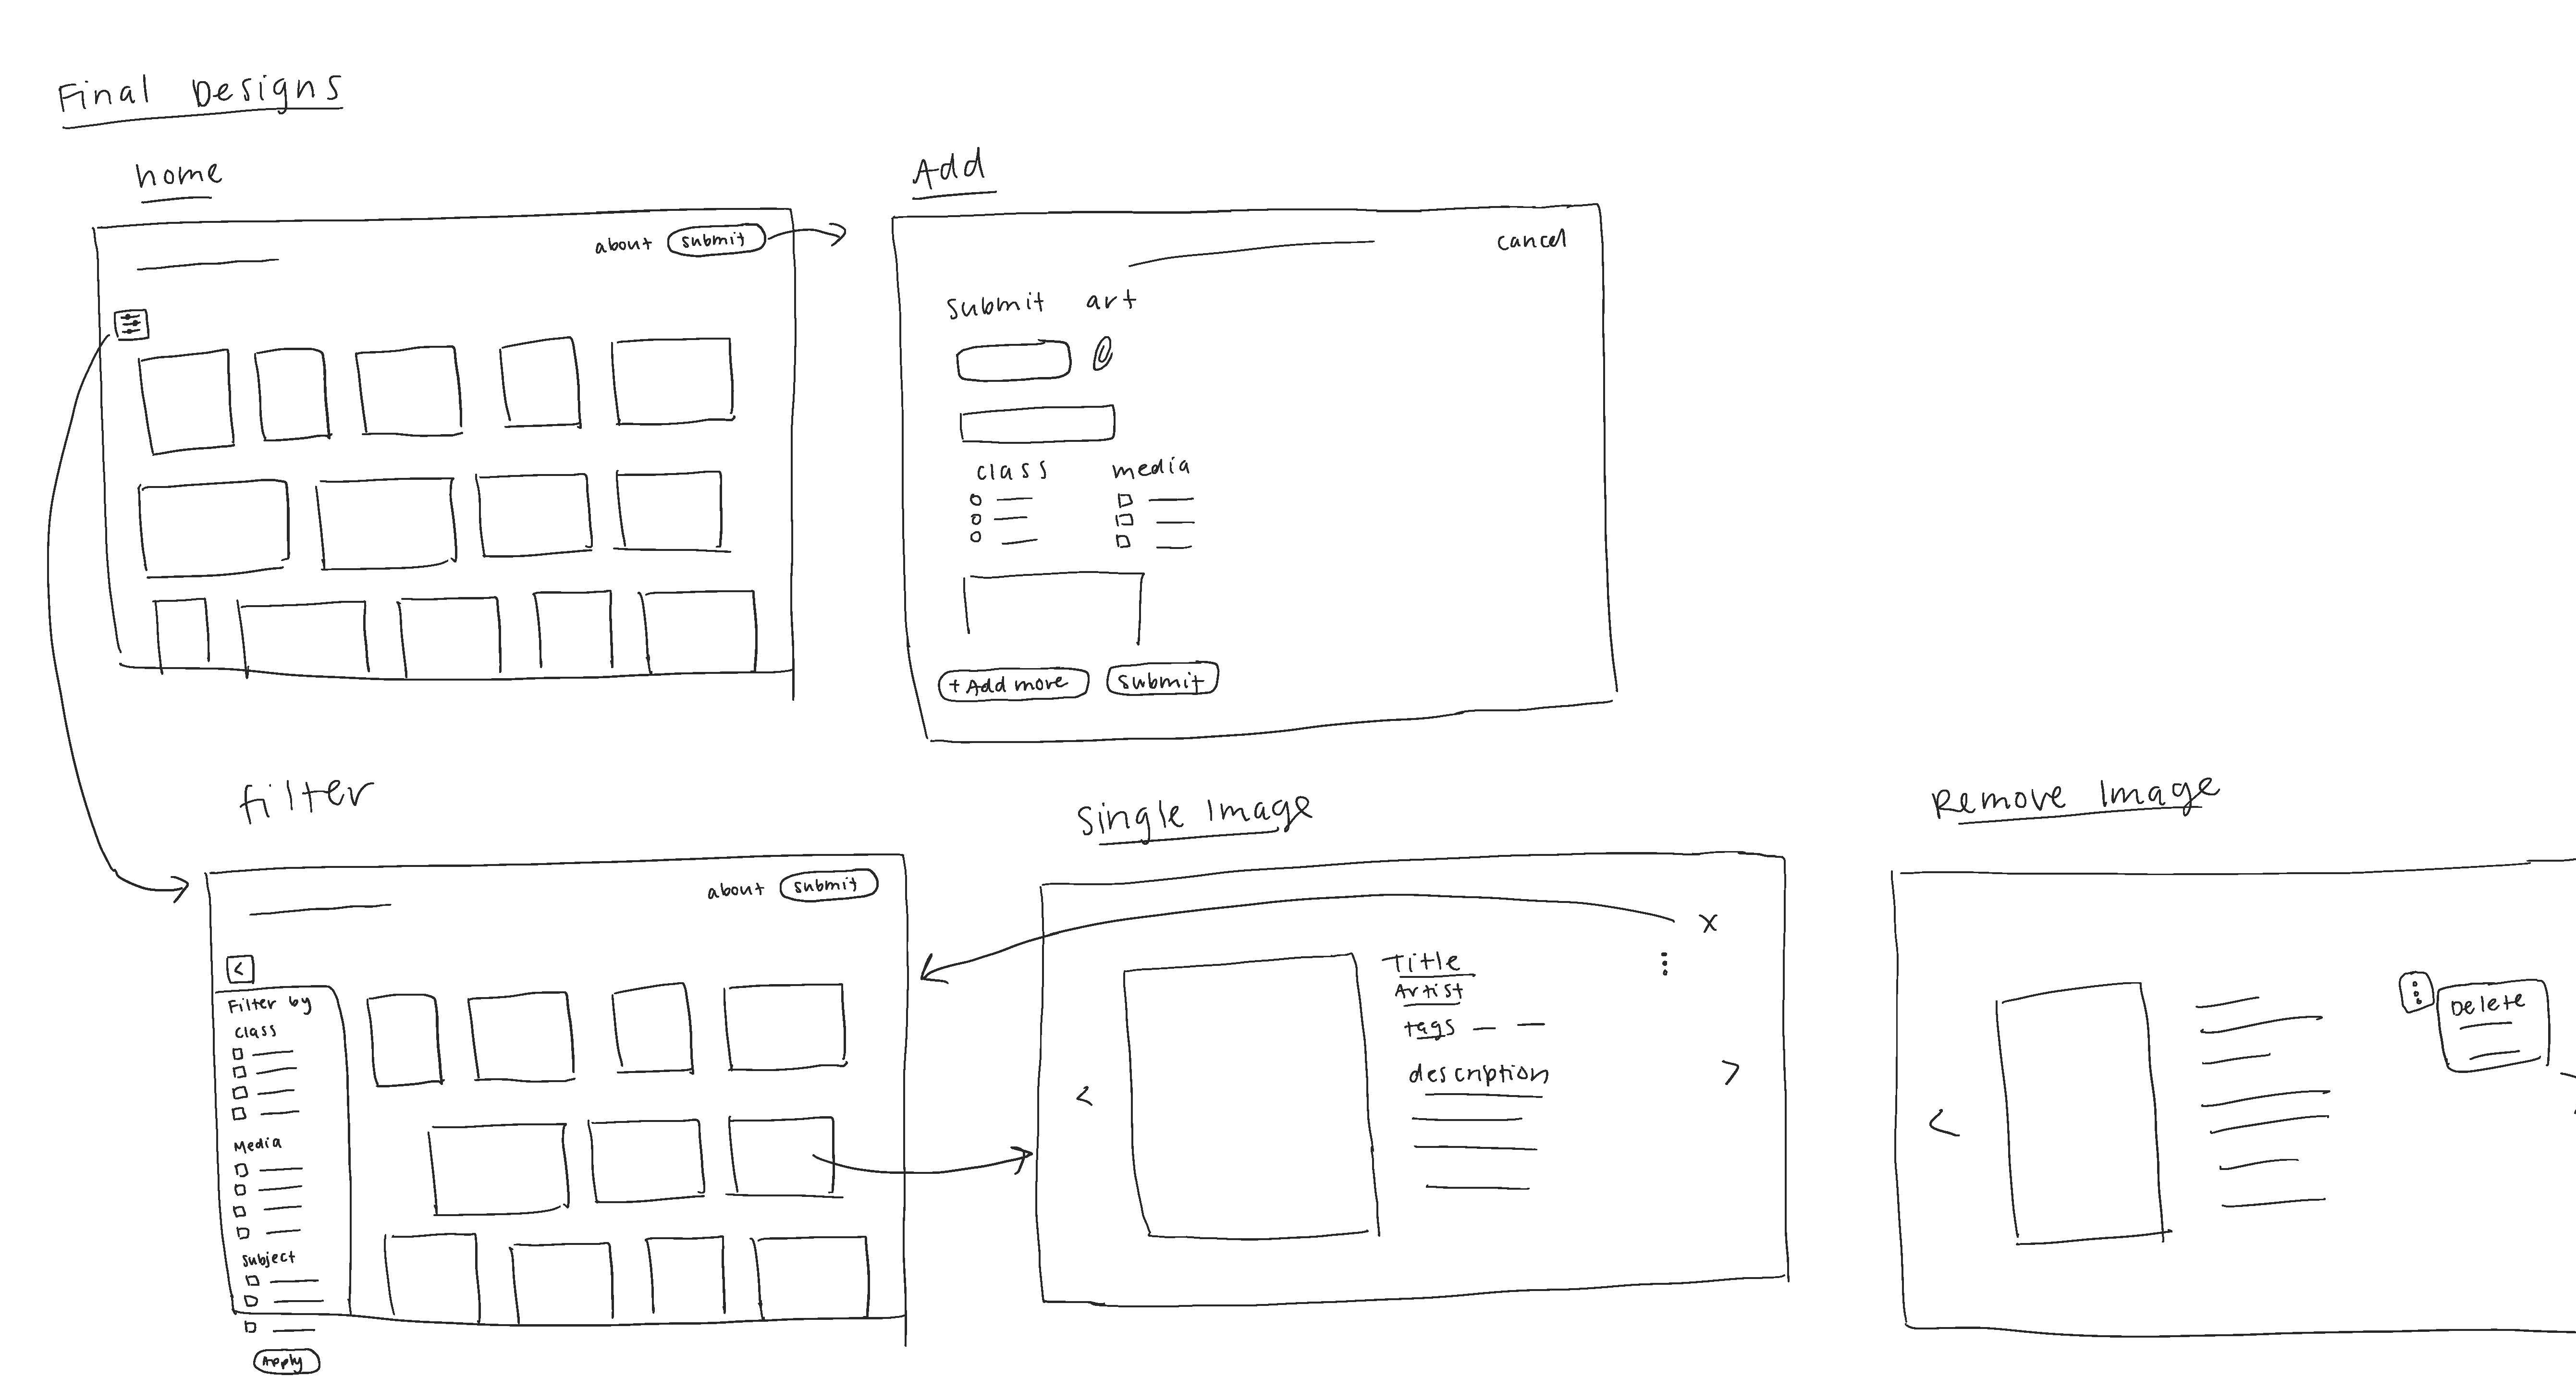 Final Designs
home
about submit
Add
cancel
submit art
class media
+ Add more submit
filter
about submit
<
Filter by
class
Media
Subject
Apply
Single Image
X
Title
Artist
tags
description
< >
Remove Image
Delete
<